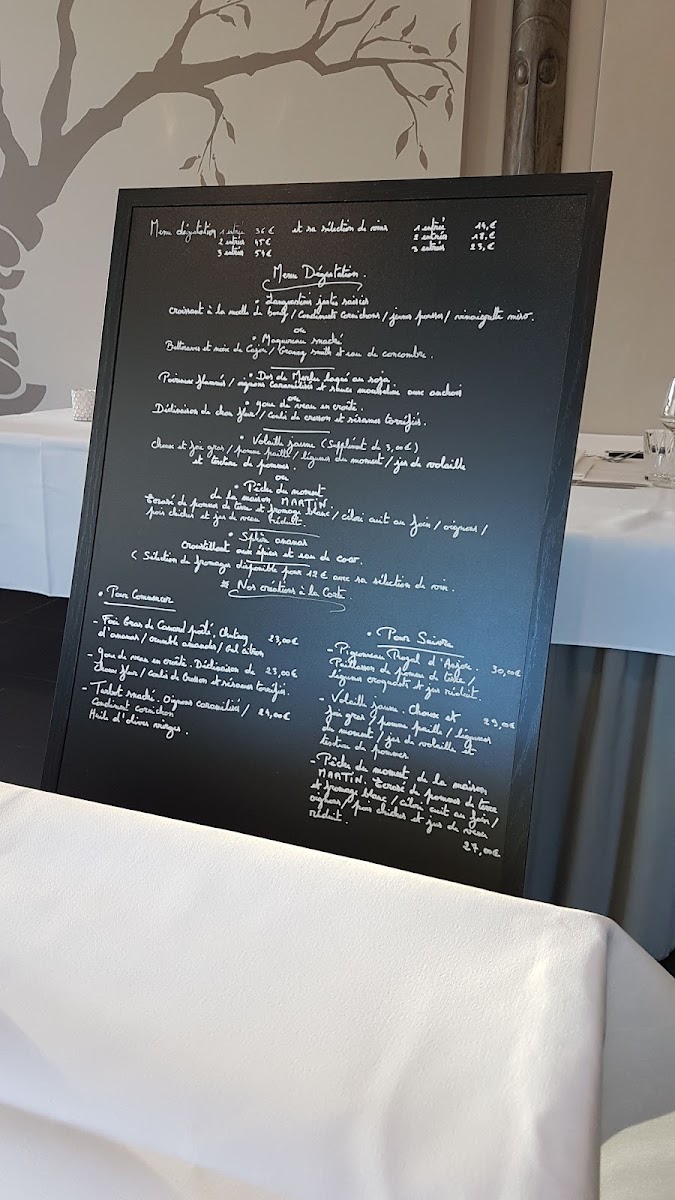 Menu dégustation 1 entrée 36 € et sa sélection de vins 1 entrée 14,€
2 entrées 45 € 2 entrées 18,€
3 entrées 54 € 3 entrées 23,€
Menu Dégustation.
• Langoustines justes saisies
Croissant à la moelle de bœuf / Condiment Cornichons / jeunes pousses / vinaigrette miso.
ou
• Maquereau snacké
Betteraves et noix de Cajou / Granny smith et eau de concombre.
• Dos de Merlu laqué au soja
Poireaux flammés / oignons caramélisés et sauce mousseline aux anchois
ou
• joue de veau en croûte.
Déclinaison de chou fleur / Coulis de cresson et sésames torréfiés.
• Volaille jaune (Supplément de 3,00€)
Choux et foie gras / pomme paille / légumes du moment / jus de volaille
et texture de pommes.
ou
• Pêche du moment
de la maison MARTIN.
Ecrasé de pommes de terre et fromage blanc / céleri cuit au foin / oignons /
pois chiches et jus de veau réduit
• Sphère ananas
Croustillant aux épices et eau de coco.
( Sélection de fromages disponible pour 12 € avec sa sélection de vin.
* Nos créations à la Carte.
• Pour Commencer
- Foie Gras de Canard poêlé, Chutney
d'ananas / crumble amandes / citron 23,00€
- Joue de veau en croûte. Déclinaison de
Choux fleur / Coulis de Cresson et sésames torréfiés. 23,00€
- Turbot snacké. Oignons caramélisés /
Condiment cornichon 24,00€
Huile d'olives vierges.
• Pour Suivre
- Pigeonneau Royal d'Anjou. 30,00€
Paillasson de pommes de terre /
légumes croquants et jus réduit.
- Volaille jaune. Choux et
foie gras / pomme paille / légumes 29,00€
du moment / jus de volaille et
texture de pommes
- Pêche du moment de la maison
MARTIN. Ecrasé de pommes de terre
et fromage blanc / céleri cuit au foin /
oignons / pois chiches et jus de veau
réduit.
27,00€